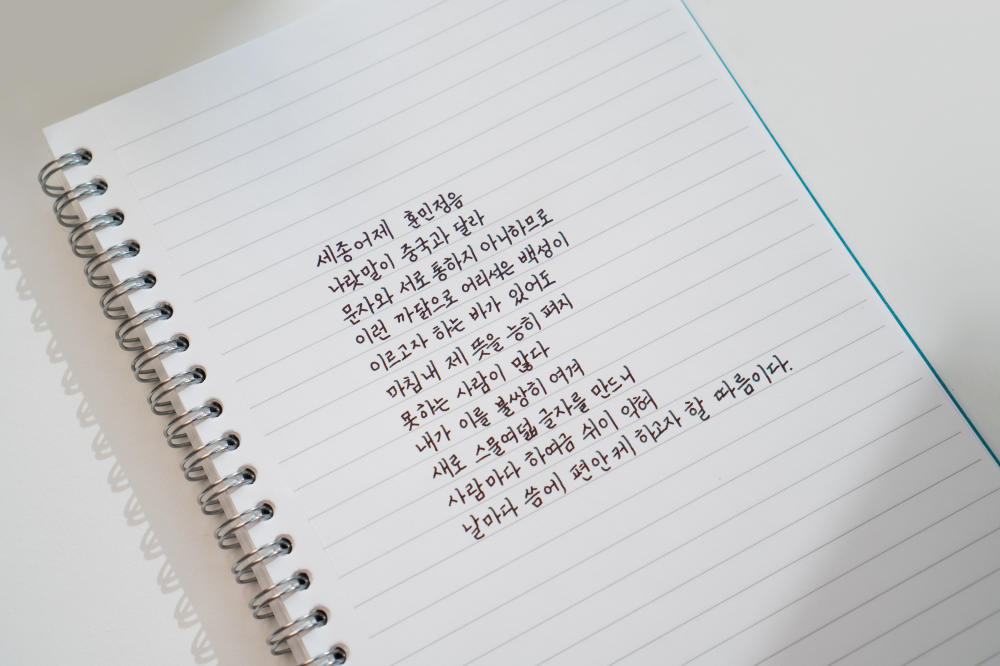 세종어제 훈민정음
나랏말이 중국과 달라
문자와 서로 통하지 아니하므로
이런 까닭으로 어리석은 백성이
이르고자 하는 바가 있어도
마침내 제 뜻을 능히 펴지
못하는 사람이 많다
내가 이를 불쌍히 여겨
새로 스물여덟 글자를 만드니
사람마다 하여금 쉬이 익혀
날마다 씀에 편안케 하고자 할 따름이다.